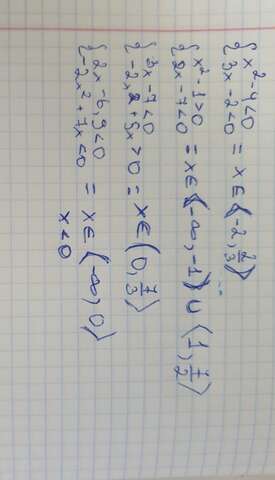 { x² - 4 < 0
3x - 2 < 0 = x ∈ (-2, 2/3)
{ x² - 1 > 0
2x - 7 < 0 = x ∈ (-∞, -1) ∪ (1, 7/2)
{ 3x - 7 < 0
-2x² + 5x > 0 = x ∈ (0, 7/3)
{ 2x - 6,9 < 0
-2x² + 7x < 0 = x ∈ (-∞, 0)
x < 0